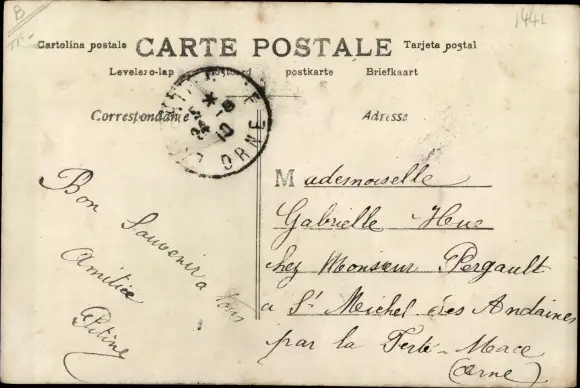 B
144L
Cartolina postale CARTE POSTALE Tarjeta postal
Levelezo-lap postcard postkarte Briefkaart
Correspondance
Adresse
ORNE
Bon Souvenir a
Amitiée
Mademoiselle
Gabrielle Hue
chez Monsieur Pergault
a St Michel des Andaines
par la Ferté-Mace
(Orne)